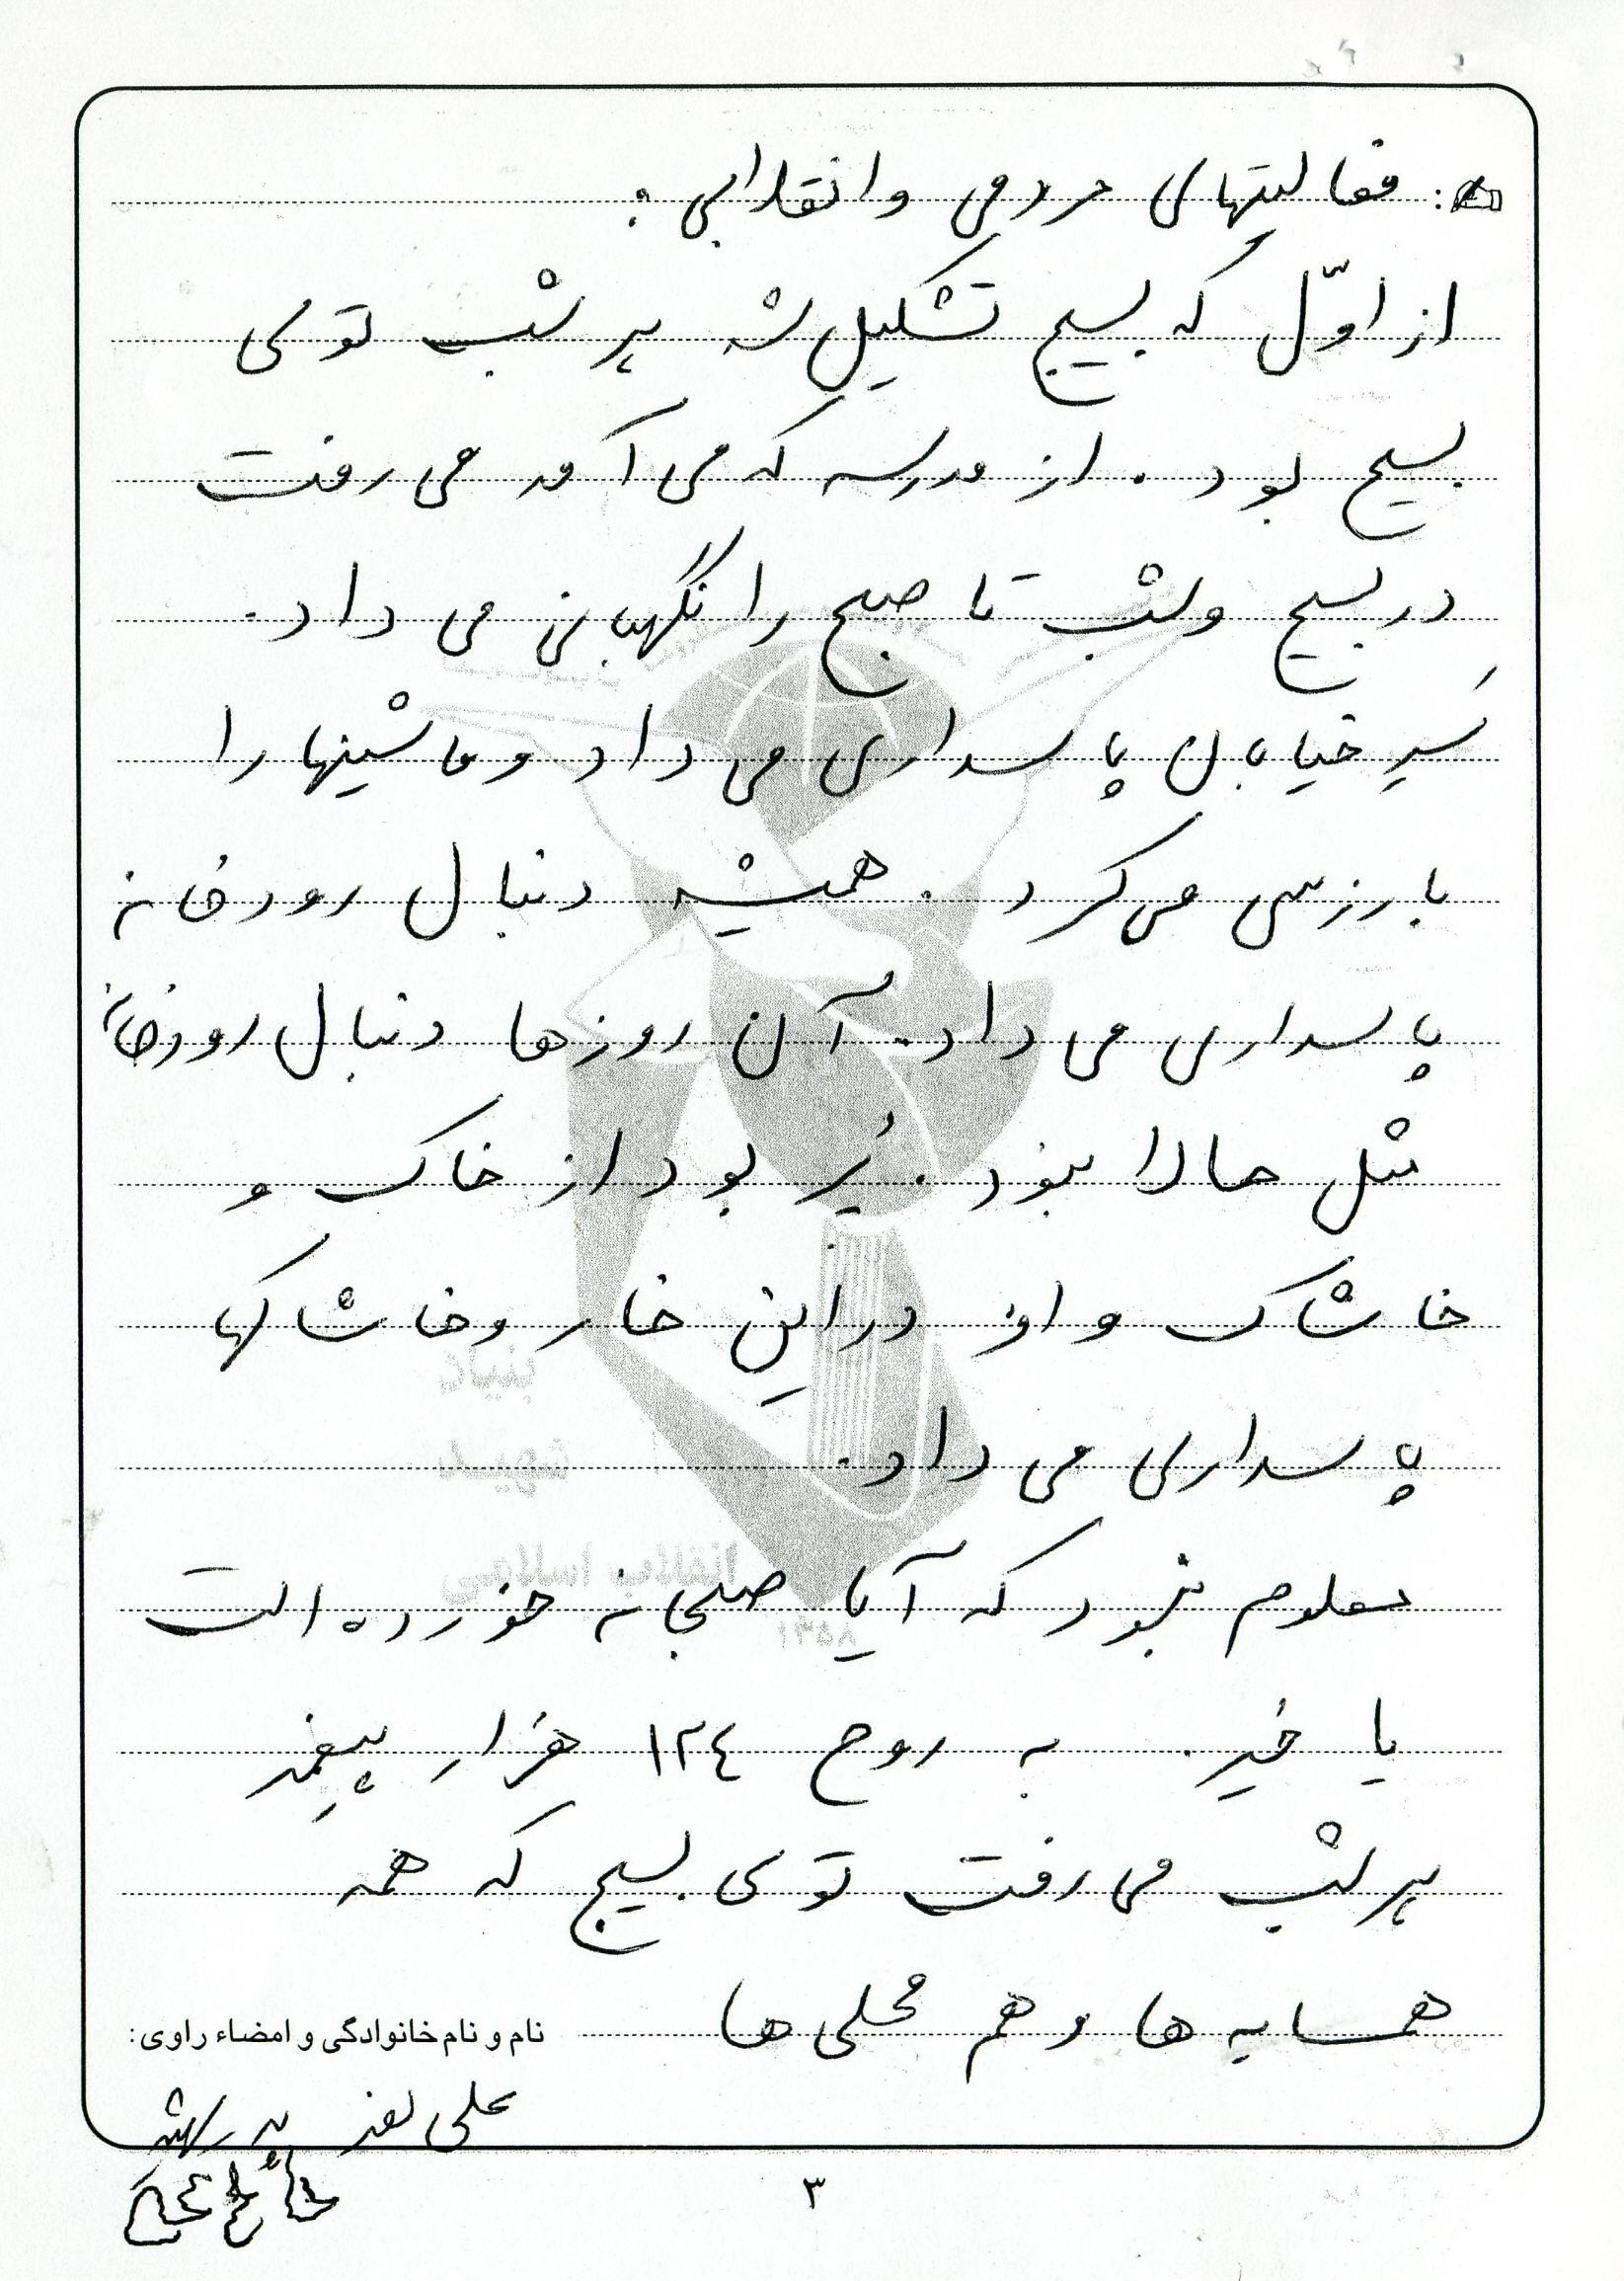 : فعالیتهای مردمی و انقلابی :
از اوّل که بسیج تشکیل شد هر شب توی
بسیج بود. از مدرسه که می آمد می رفت
در بسیج و شب تا صبح را نگهبانی می داد.
سَرِ خیابان پاسداری می داد و ماشینها را
بازرسی می کرد. همیشه دنبال رودخانه
پاسداری می داد. آن روزها دنبال رودخانه
مثل حالا نبود. پُر بود از خاک و
خاشاک و او در این خار و خاشاکها
پاسداری می داد.
معلوم نبود که آیا صبحانه خورده است
یا خیر. به روح ۱۲٤ هزار پیغمبر
هر شب می رفت توی بسیج که همه
همسایه ها و هم محلی ها
نام و نام خانوادگی و امضاء راوی:
علی پدر شهید
۳
بنیاد
شهید
انقلاب اسلامی
۱۳۵۸